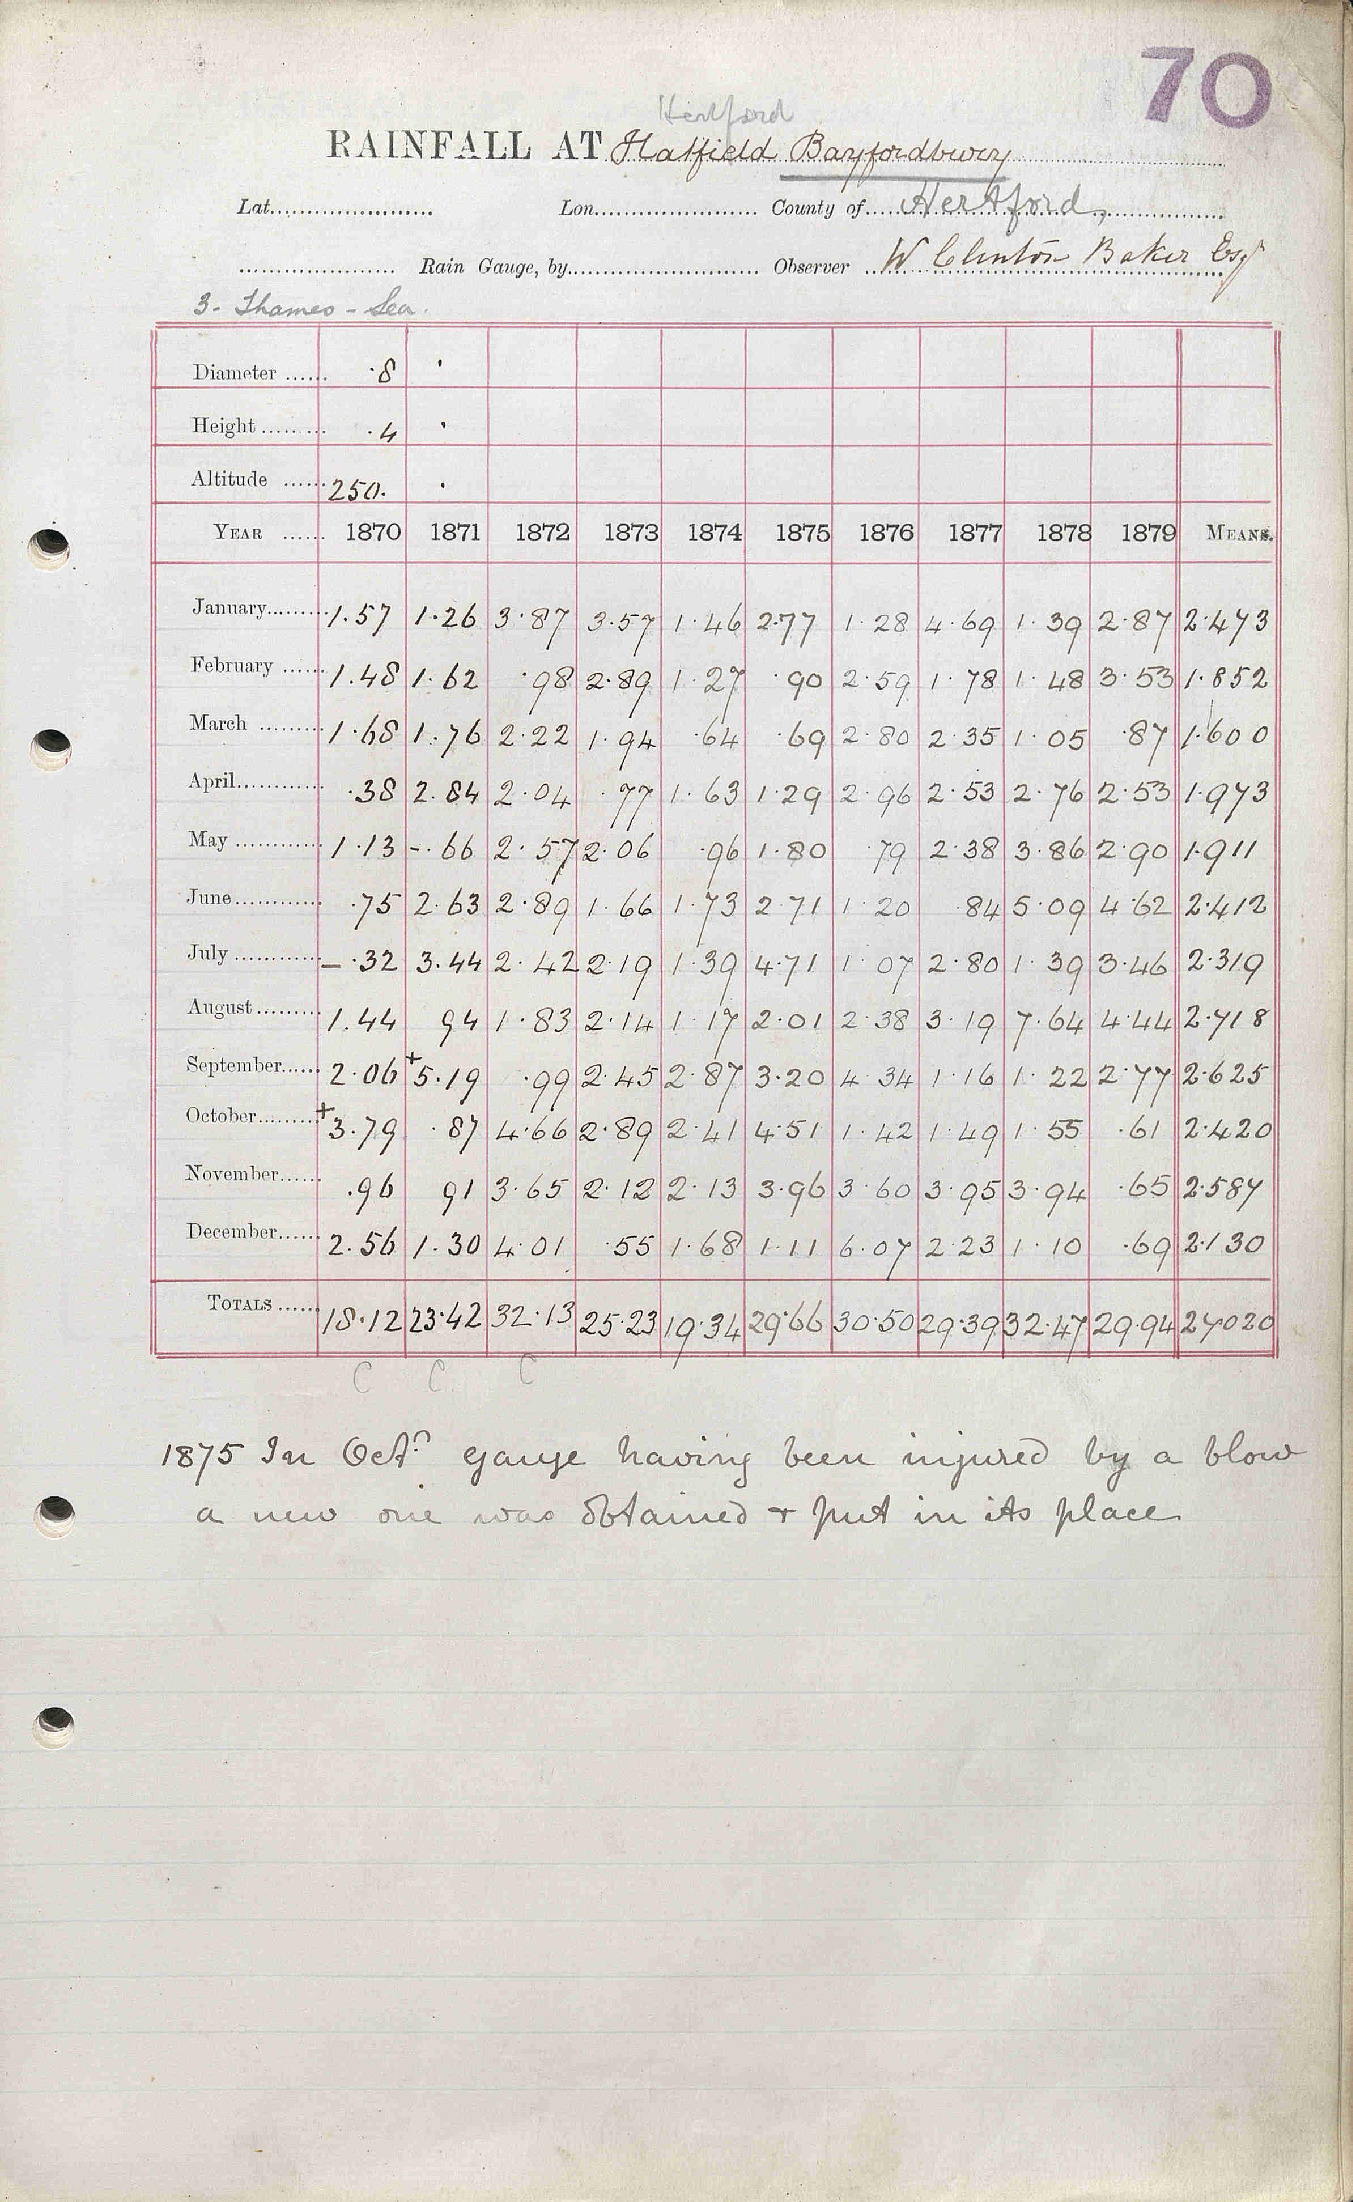 70
Hertford
RAINFALL AT Hatfield Bayfordbury
Lat. Lon. County of Hertford,
Rain Gauge, by Observer W Clinton Baker Esq
3. Thames - Lea.
Diameter ·8 '
Height ·4 '
Altitude 250. ·
YEAR 1870 1871 1872 1873 1874 1875 1876 1877 1878 1879 MEANS.
January 1.57 1.26 3.87 3.57 1.46 2.77 1.28 4.69 1.39 2.87 2.473
February 1.48 1.62 .98 2.89 1.27 .90 2.59 1.78 1.48 3.53 1.852
March 1.68 1.76 2.22 1.94 .64 .69 2.80 2.35 1.05 .87 1.600
April .38 2.84 2.04 .77 1.63 1.29 2.96 2.53 2.76 2.53 1.973
May 1.13 -.66 2.57 2.06 .96 1.80 .79 2.38 3.86 2.90 1.911
June .75 2.63 2.89 1.66 1.73 2.71 1.20 .84 5.09 4.62 2.412
July -.32 3.44 2.42 2.19 1.39 4.71 1.07 2.80 1.39 3.46 2.319
August 1.44 94 1.83 2.14 1.17 2.01 2.38 3.19 7.64 4.44 2.718
September 2.06 +5.19 .99 2.45 2.87 3.20 4.34 1.16 1.22 2.77 2.625
October +3.79 .87 4.66 2.89 2.41 4.51 1.42 1.49 1.55 .61 2.420
November .96 91 3.65 2.12 2.13 3.96 3.60 3.95 3.94 .65 2.587
December 2.56 1.30 4.01 .55 1.68 1.11 6.07 2.23 1.10 .69 2.130
TOTALS 18.12 23.42 32.13 25.23 19.34 29.66 30.50 29.39 32.47 29.94 27020
C C C
1875 In Octr gauge having been injured by a blow
a new one was obtained + put in its place